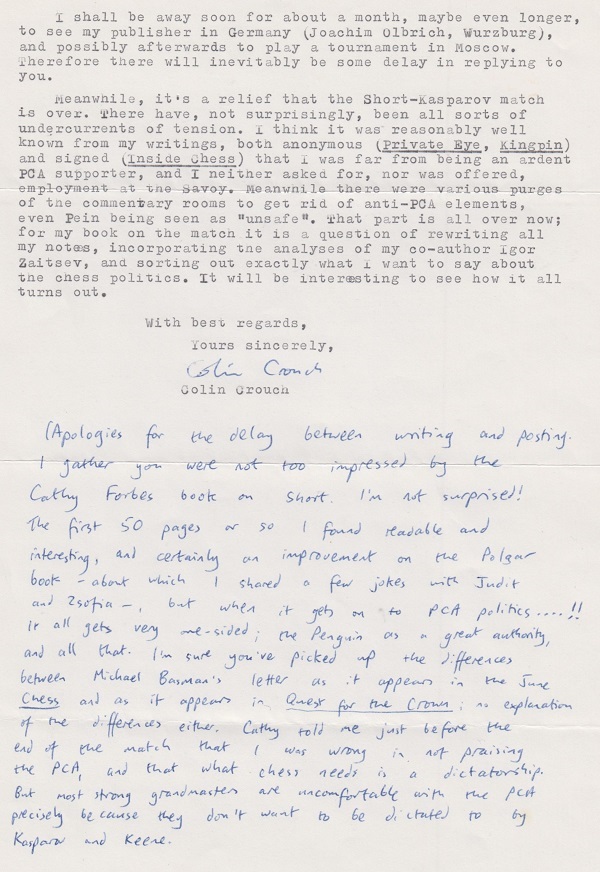 I shall be away soon for about a month, maybe even longer,
to see my publisher in Germany (Joachim Olbrich, Wurzburg),
and possibly afterwards to play a tournament in Moscow.
Therefore there will inevitably be some delay in replying to
you.
Meanwhile, it's a relief that the Short-Kasparov match
is over. There have, not surprisingly, been all sorts of
undercurrents of tension. I think it was reasonably well
known from my writings, both anonymous (Private Eye, Kingpin)
and signed (Inside Chess) that I was far from being an ardent
PCA supporter, and I neither asked for, nor was offered,
employment at the Savoy. Meanwhile there were various purges
of the commentary rooms to get rid of anti-PCA elements,
even Pein being seen as "unsafe". That part is all over now;
for my book on the match it is a question of rewriting all
my notes, incorporating the analyses of my co-author Igor
Zaitsev, and sorting out exactly what I want to say about
the chess politics. It will be interesting to see how it all
turns out.
With best regards,
Yours sincerely,
Colin Crouch
Colin Crouch
(Apologies for the delay between writing and posting.
I gather you were not too impressed by the
Cathy Forbes book on Short. I'm not surprised!
The first 50 pages or so I found readable and
interesting, and certainly an improvement on the Polgar
book - about which I shared a few jokes with Judit
and Zsofia -, but when it gets on to PCA politics....!!
It all gets very one-sided; the Penguin as a great authority,
and all that. I'm sure you've picked up the differences
between Michael Basman's letter as it appears in the June
Chess and as it appears in Quest for the Crown; no explanation
of the differences either. Cathy told me just before the
end of the match that I was wrong in not praising
the PCA, and that what chess needs is a dictatorship.
But most strong grandmasters are uncomfortable with the PCA
precisely because they don't want to be dictated to by
Kasparov and Keene.